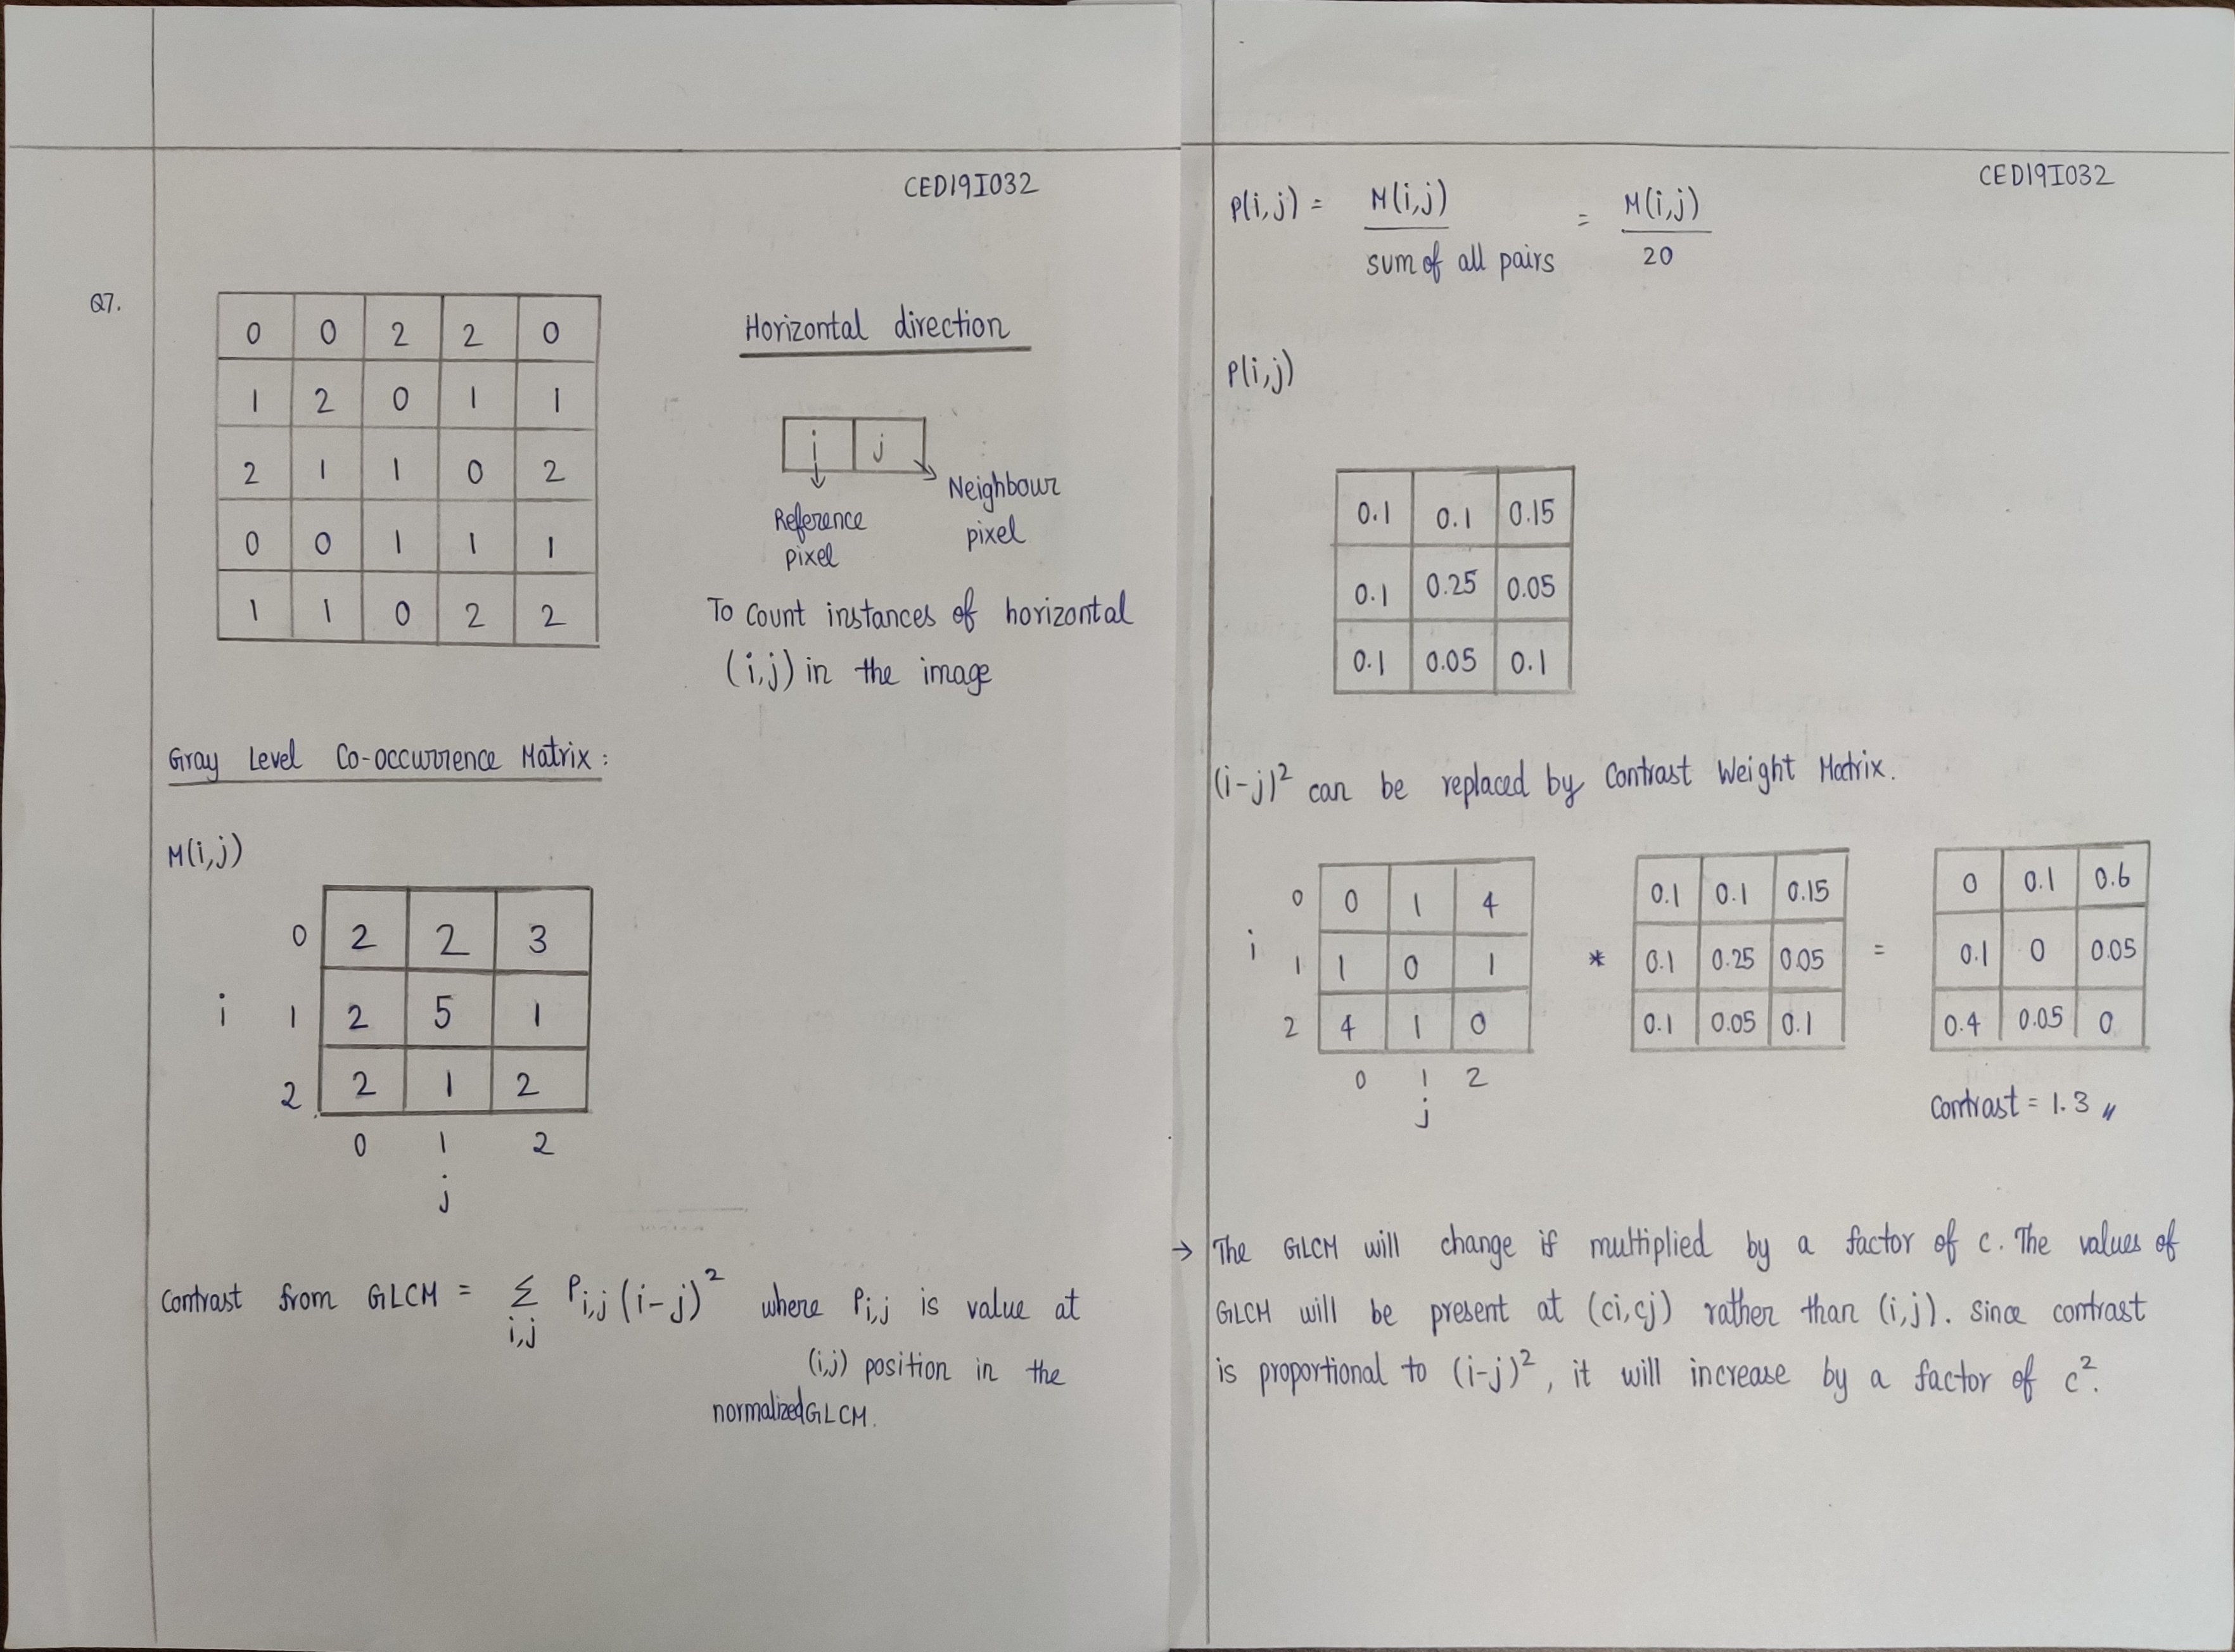 CED19I032
Q7.
0 0 2 2 0
1 2 0 1 1
2 1 1 0 2
0 0 1 1 1
1 1 0 2 2
Horizontal direction
i j
Reference pixel
Neighbour pixel
To count instances of horizontal
(i,j) in the image
Gray Level Co-occurrence Matrix :
M(i,j)
0 2 2 3
i 1 2 5 1
2 2 1 2
0 1 2
j
Contrast from GLCM = Σ Pi,j (i-j)² where Pi,j is value at
i,j
(i,j) position in the
normalized GLCM.
CED19I032
P(i,j) = M(i,j) / sum of all pairs = M(i,j) / 20
P(i,j)
0.1 0.1 0.15
0.1 0.25 0.05
0.1 0.05 0.1
(i-j)² can be replaced by Contrast Weight Matrix.
0 0 1 4
i 1 1 0 1
2 4 1 0
0 1 2
j
*
0.1 0.1 0.15
0.1 0.25 0.05
0.1 0.05 0.1
=
0 0.1 0.6
0.1 0 0.05
0.4 0.05 0
Contrast = 1.3 〃
→ The GLCM will change if multiplied by a factor of c. The values of
GLCM will be present at (ci,cj) rather than (i,j). Since contrast
is proportional to (i-j)², it will increase by a factor of c².